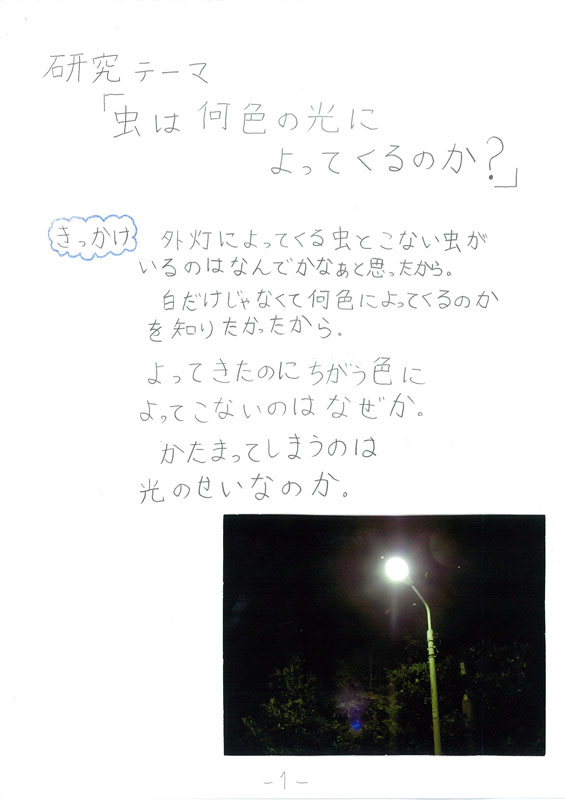 研究テーマ
「虫は何色の光に
よってくるのか？」
きっかけ 外灯によってくる虫とこない虫が
いるのはなんでかなぁと思ったから。
白だけじゃなくて何色によってくるのか
を知りたかったから。
よってきたのにちがう色に
よってこないのはなぜか。
かたまってしまうのは
光のせいなのか。
-1-